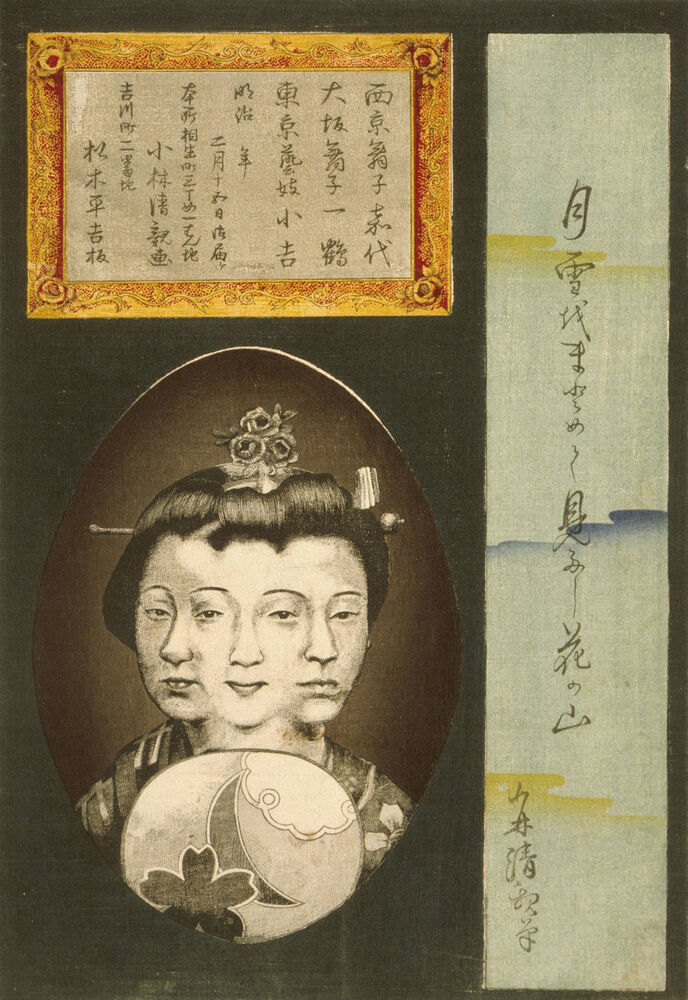 月雪越まとめて見たし花の山
小林清親筆
西京舞子嘉代
大坂舞子一鶴
東京藝妓小吉
明治 年
二月十五日御届ケ
本所相生町三丁目一
地
小林清親画
吉川町二番地
松木平吉板